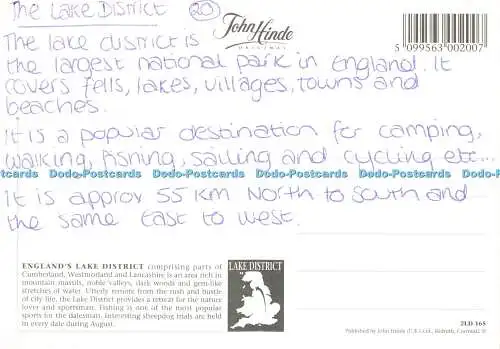 The Lake District 20
John Hinde
ORIGINAL
5 099563 002007
The lake district is
the largest national park in England. It
covers fells, lakes, villages, towns and
beaches.
It is a popular destination for camping,
walking, fishing, sailing and cycling etc...
Postcards Dodo-Postcards Dodo-Postcards Dodo-Postcards Dodo-Postcards Dodo-Postcards
It is approx 55 KM North to South and
the same East to West.
ENGLAND'S LAKE DISTRICT comprising parts of
Cumberland, Westmorland and Lancashire is an area rich in
mountain massifs, noble valleys, dark woods and gem-like
stretches of water. Utterly remote from the rush and bustle
of city life, the Lake District provides a retreat for the nature
lover and sportsman. Fishing is one of the most popular
sports for the dalesman. Interesting sheepdog trials are held
in every dale during August.
LAKE DISTRICT
2LD 165
Published by John Hinde (U.K.) Ltd., Redruth, Cornwall.